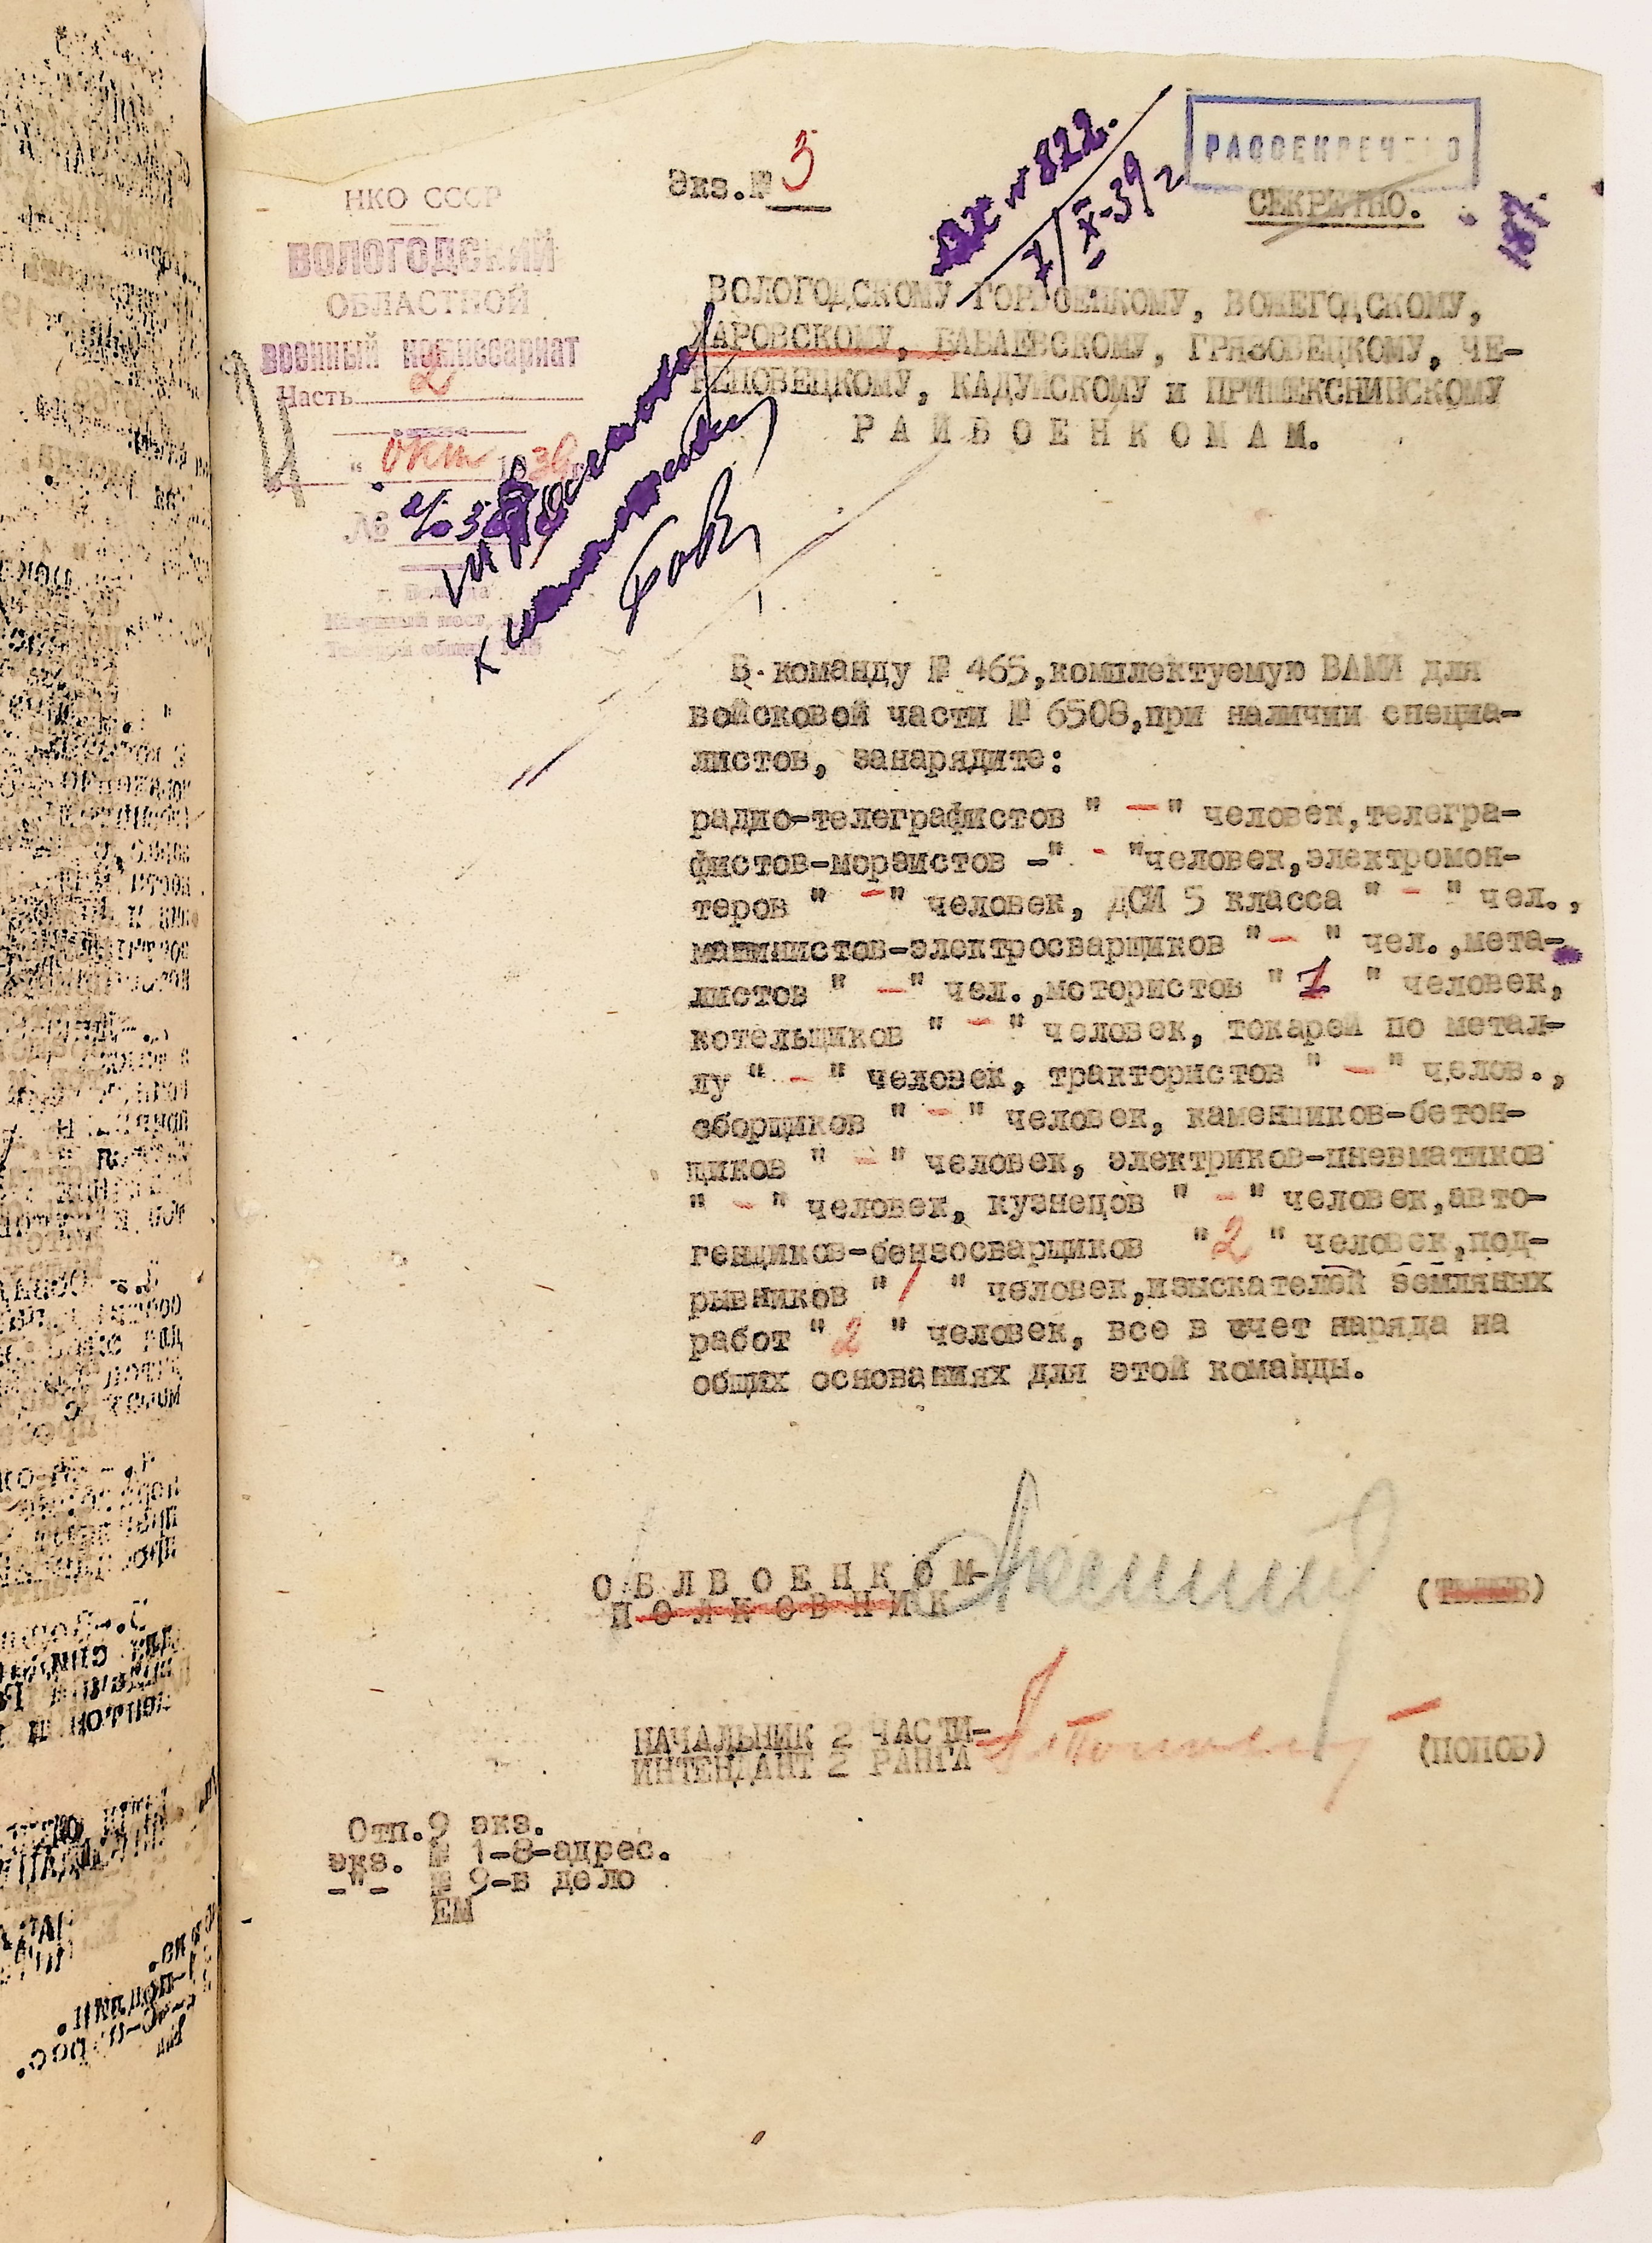 Экз.№ 3
Вх № 822.
7/X-39 г
РАССЕКРЕЧЕНО
СЕКРЕТНО.
НКО СССР
ВОЛОГОДСКИЙ
ОБЛАСТНОЙ
военный комиссариат
Часть 2
" окт 1939
№
г. Вологда
ВОЛОГОДСКОМУ ГОРВОЕНКОМУ, ВОЖЕГОДСКОМУ,
ХАРОВСКОМУ, БАБАЕВСКОМУ, ГРЯЗОВЕЦКОМУ, ЧЕ-
РЕПОВЕЦКОМУ, КАДУЙСКОМУ и ПРИШЕКСНИНСКОМУ
Р А Й В О Е Н К О М А М.
В команду № 465,комплектуемую ВАМИ для
войсковой части № 6508,при наличии специа-
листов, занарядите:
радио-телеграфистов " - " человек,телегра-
фистов-морзистов -" - "человек,электромон-
теров " - " человек, ДСИ 5 класса " - " чел.,
машинистов-электросварщиков " - " чел.,мета-
листов " - " чел.,мотористов " 1 " человек,
котельщиков " - " человек, токарей по метал-
лу " - " человек, трактористов " - " челов.,
сборщиков " - " человек, каменщиков-бетон-
щиков " - " человек, электриков-пневматиков
" - " человек, кузнецов " - " человек,авто-
генщиков-бензосварщиков "2 " человек,под-
рывников "1 " человек,изыскателей земляных
работ "2 " человек, все в счет наряда на
общих основаниях для этой команды.
О Б Л В О Е Н К О М-
П О Л К О В Н И К
НАЧАЛЬНИК 2 ЧАСТИ-
ИНТЕНДАНТ 2 РАНГА (ПОПОВ)
Отп.9 экз.
экз. № 1-8-адрес.
-"- № 9-в дело
ЕМ